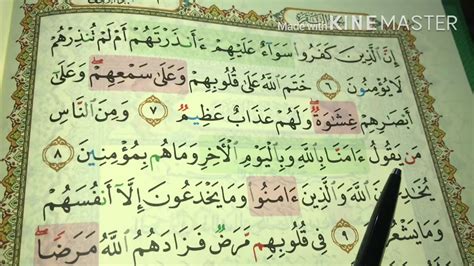 Made with KINEMASTER
إِنَّ ٱلَّذِينَ كَفَرُوا۟ سَوَآءٌ عَلَيْهِمْ ءَأَنذَرْتَهُمْ أَمْ لَمْ تُنذِرْهُمْ
لَا يُؤْمِنُونَ ٦ خَتَمَ ٱللَّهُ عَلَىٰ قُلُوبِهِمْ وَعَلَىٰ سَمْعِهِمْ ۖ وَعَلَىٰٓ
أَبْصَٰرِهِمْ غِشَٰوَةٌ ۖ وَلَهُمْ عَذَابٌ عَظِيمٌ ٧ وَمِنَ ٱلنَّاسِ
مَن يَقُولُ ءَامَنَّا بِٱللَّهِ وَبِٱلْيَوْمِ ٱلْءَاخِرِ وَمَا هُم بِمُؤْمِنِينَ ٨
يُخَٰدِعُونَ ٱللَّهَ وَٱلَّذِينَ ءَامَنُوا۟ وَمَا يَخْدَعُونَ إِلَّآ أَنفُسَهُمْ
وَمَا يَشْعُرُونَ ٩ فِى قُلُوبِهِم مَّرَضٌ فَزَادَهُمُ ٱللَّهُ مَرَضًا ۖ